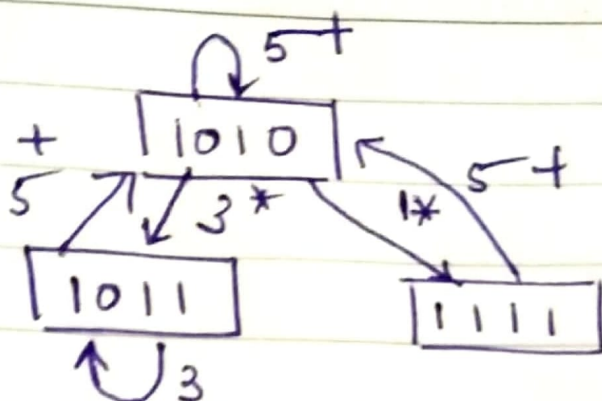 5+
1010
+
5
3*
1*
5+
1011
1111
3